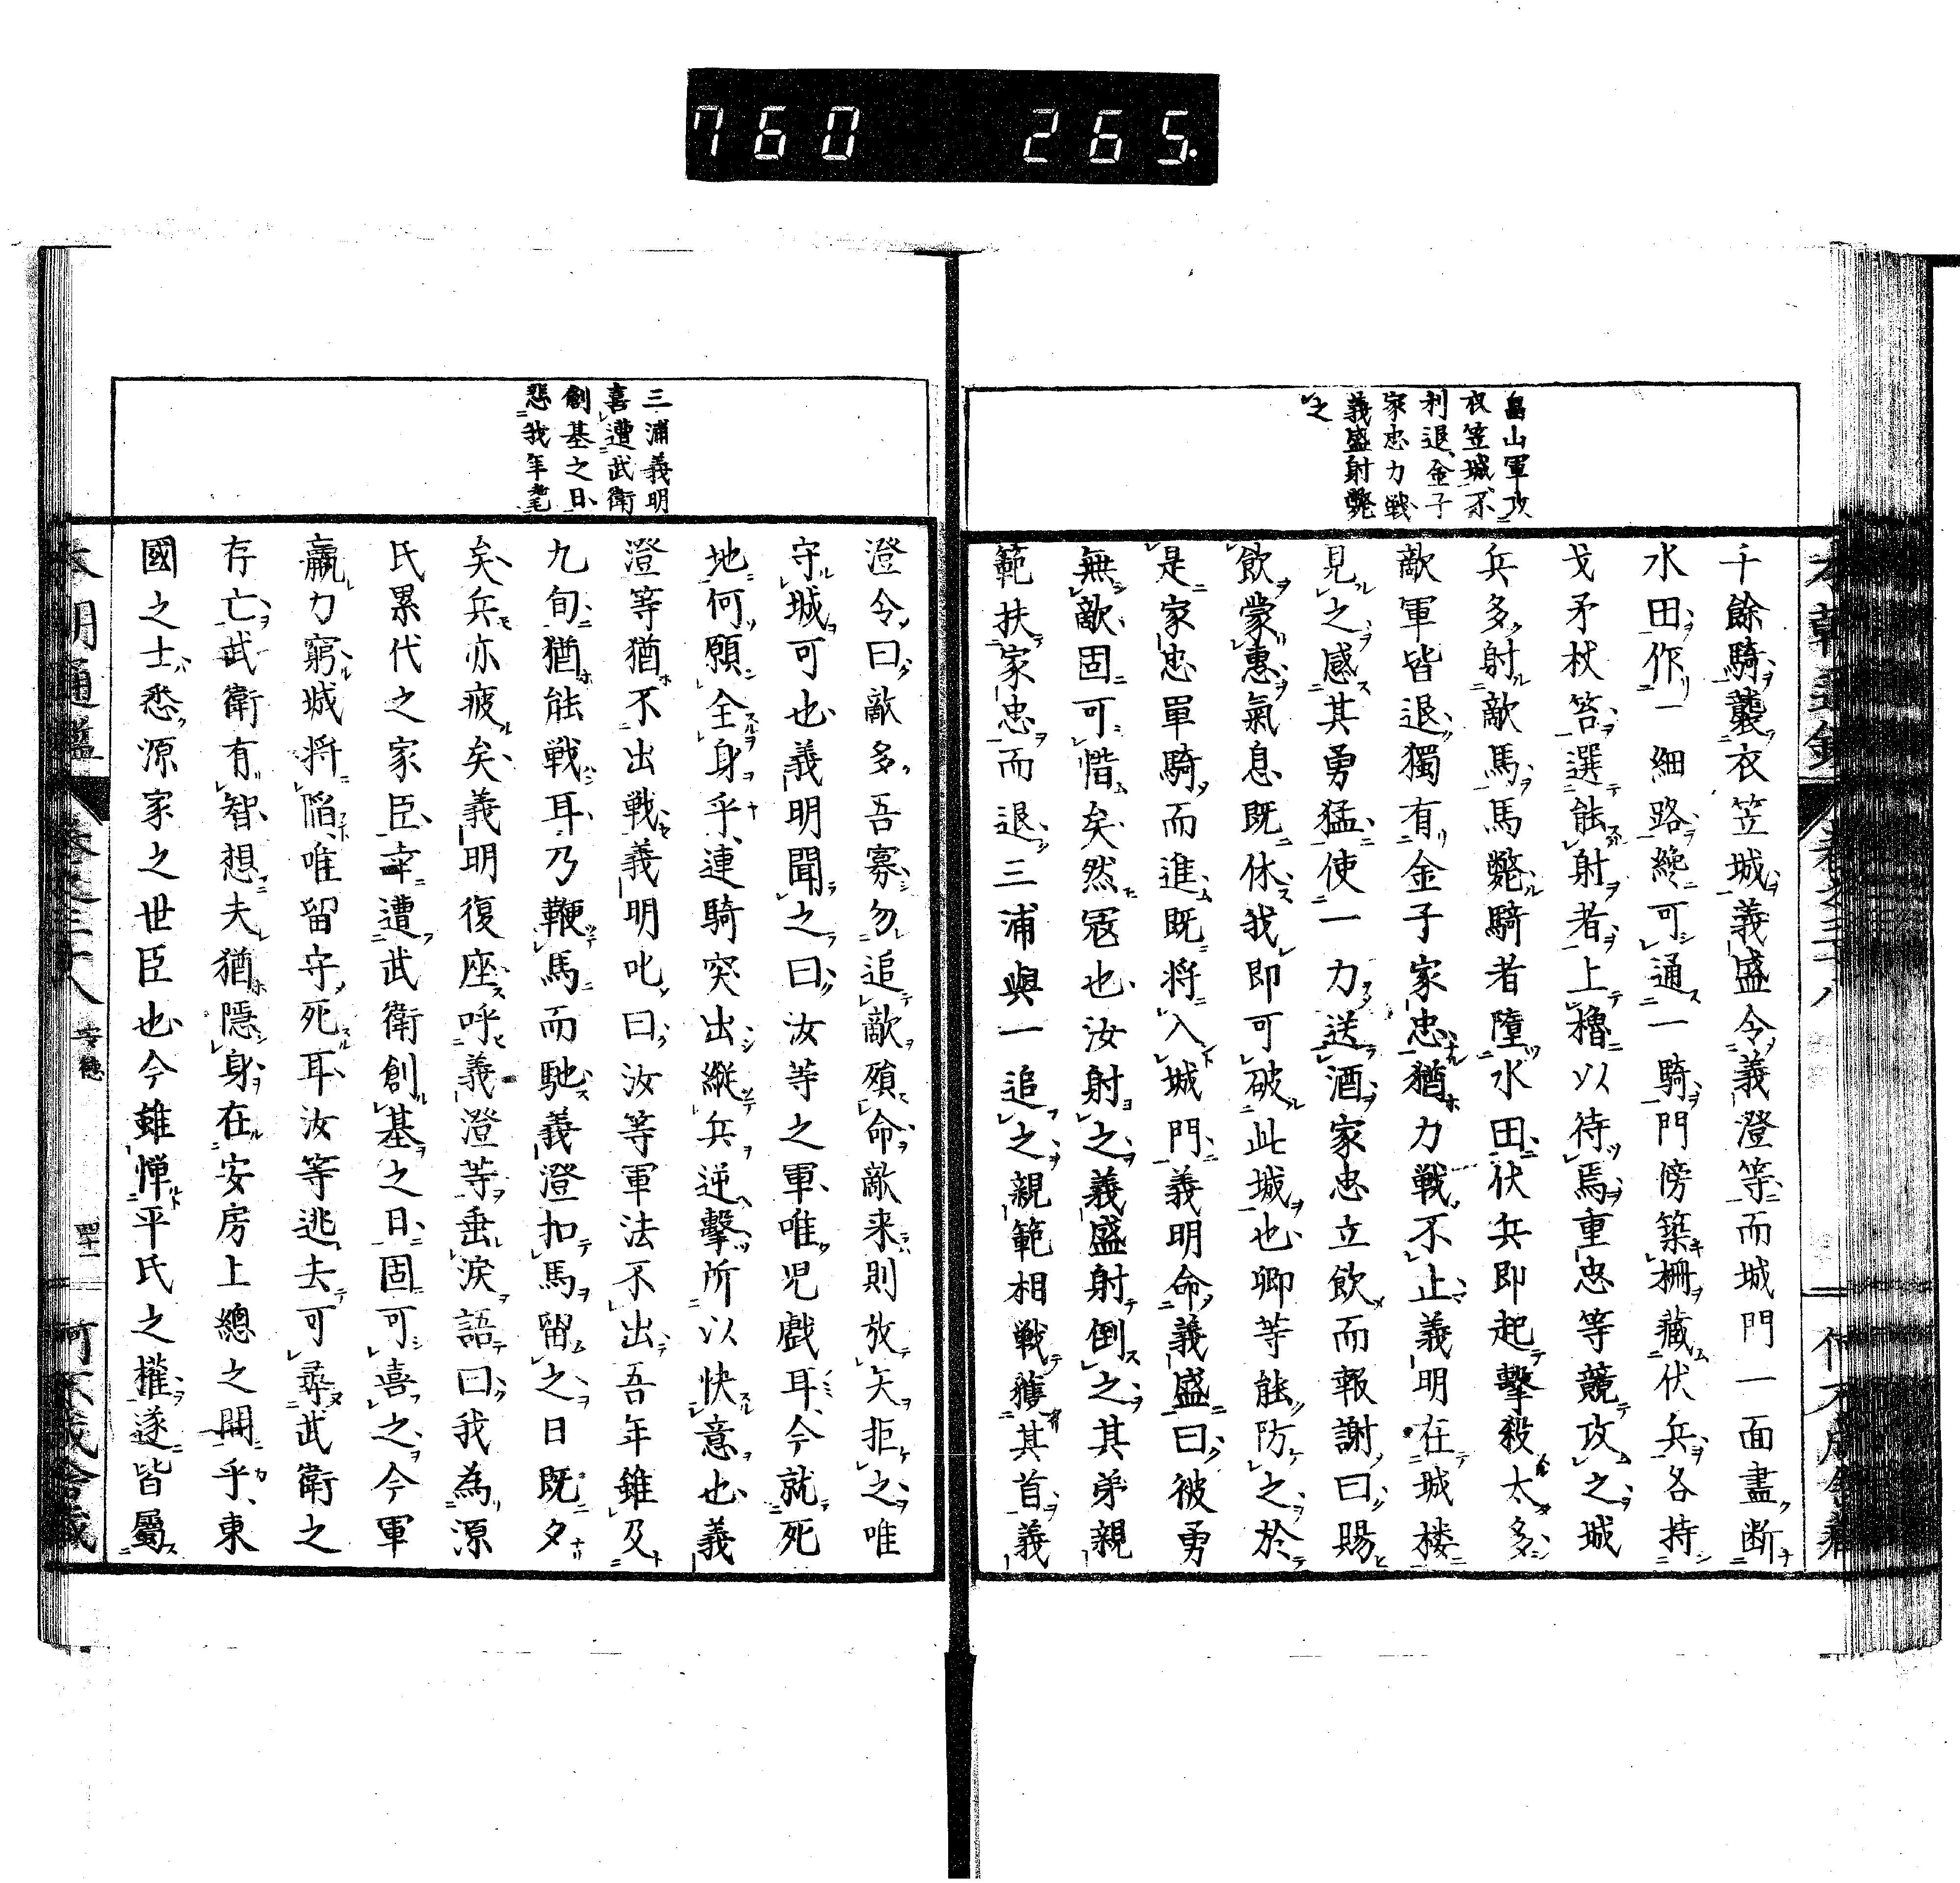 760 265.
畠山軍攻
衣笠城不
利退金子
家忠力戦
義盛射斃
之
千餘騎襲衣笠城義盛令義澄等而城門一面盡断
水田作一細路纔可通一騎門傍築柵藏伏兵各持
戈矛杖笞選能射者上櫓以待焉重忠等競攻之城
兵多射敵馬馬斃騎者墮水田伏兵即起撃殺太多
敵軍皆退獨有金子家忠猶力戦不止義明在城楼
見之感其勇猛使一力送酒家忠立飲而報謝曰賜
飲蒙惠氣息既休我即可破此城也卿等能防之於
是家忠單騎而進既将入城門義明命義盛曰彼勇
無敵固可惜矣然冦也汝射之義盛射倒之其弟親
範扶家忠而退三浦與一追之親範相戦獲其首義
三浦義明
喜遭武衛
創基之日
悲我年耄
澄令曰敵多吾寡勿追敵殞命敵来則放矢拒之唯
守城可也義明聞之曰汝等之軍唯児戯耳今就死
地何願全身乎連騎突出縦兵逆擊所以快意也義
澄等猶不出戦義明叱曰汝等軍法不出吾年雖及
九旬猶能戦耳乃鞭馬而馳義澄扣馬留之日既夕
矣兵亦疲矣義明復座呼義澄等垂涙語曰我為源
氏累代之家臣幸遭武衛創基之日固可喜之今軍
羸力窮城将陥唯留守死耳汝等逃去可尋武衛之
存亡武衛有智想夫猶隠身在安房上總之間乎東
國之士悉源家之世臣也今雖憚平氏之權遂皆屬
本朝通鑑